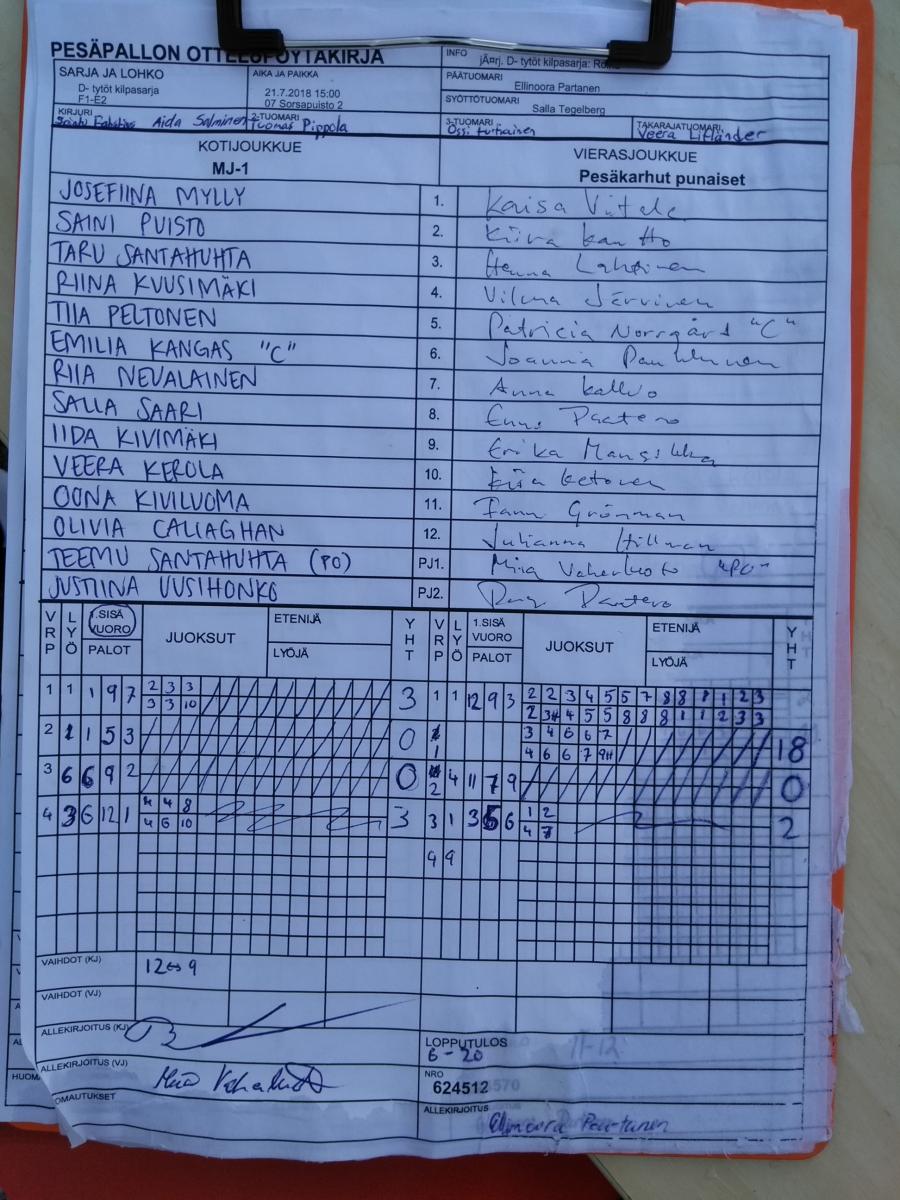 PESÄPALLON OTTELUPÖYTÄKIRJA
INFO
järj. D- tytöt kilpasarja:
SARJA JA LOHKO
D- tytöt kilpasarja
F1-E2
AIKA JA PAIKKA
21.7.2018 15:00
07 Sorsapuisto 2
PÄÄTUOMARI
Ellinoora Partanen
SYÖTTÖTUOMARI
Salla Tegelberg
KIRJURI
Aida Salminen
2-TUOMARI
Tuomas Pippola
3-TUOMARI
Ossi
TAKARAJATUOMARI
Veera
KOTIJOUKKUE
MJ-1
VIERASJOUKKUE
Pesäkarhut punaiset
JOSEFIINA MYLLY 1. Kaisa Viitala
SAINI PUISTO 2. Kiira Kantto
TARU SANTAHUHTA 3. Henna Lahtinen
RIINA KUUSIMÄKI 4. Vilma Järvinen
TIIA PELTONEN 5. Patricia Norrgård "C"
EMILIA KANGAS "C" 6. Joanna
RIIA NEVALAINEN 7. Anna Kallio
SALLA SAARI 8. Paatero
IIDA KIVIMÄKI 9. Erika Mansikka
VEERA KEROLA 10. Ketonen
OONA KIVILUOMA 11. Grönman
OLIVIA CALLAGHAN 12. Julianna Hillman
TEEMU SANTAHUHTA (PO) PJ1. Miia Vaherluoto "PO"
JUSTIINA UUSIHONKO PJ2. Paatero
VRP LYÖ 1.SISÄ VUORO PALOT JUOKSUT ETENIJÄ LYÖJÄ YHT VRP LYÖ 1.SISÄ VUORO PALOT JUOKSUT ETENIJÄ LYÖJÄ YHT
1 1 1 9 7 2 3 3 3 1 1 12 9 3 2 2 3 4 5 5 7 8 8 1 1 2 3
3 3 10 2 3H 4 5 5 8 8 8 1 1 2 3 3
2 1 1 5 3 0 1 3 4 6 6 7 18
4 6 6 7 9H
3 6 6 9 2 0 2 4 11 7 9 0
4 3 6 12 1 4 4 8 3 3 1 3 5 6 1 2 2
4 6 10 4 7
4 9
VAIHDOT (KJ) 12↔9
VAIHDOT (VJ)
ALLEKIRJOITUS (KJ)
LOPPUTULOS
6 - 20
11-12
ALLEKIRJOITUS (VJ)
NRO
624512
HUOMAUTUKSET
ALLEKIRJOITUS
Ellinoora Partanen